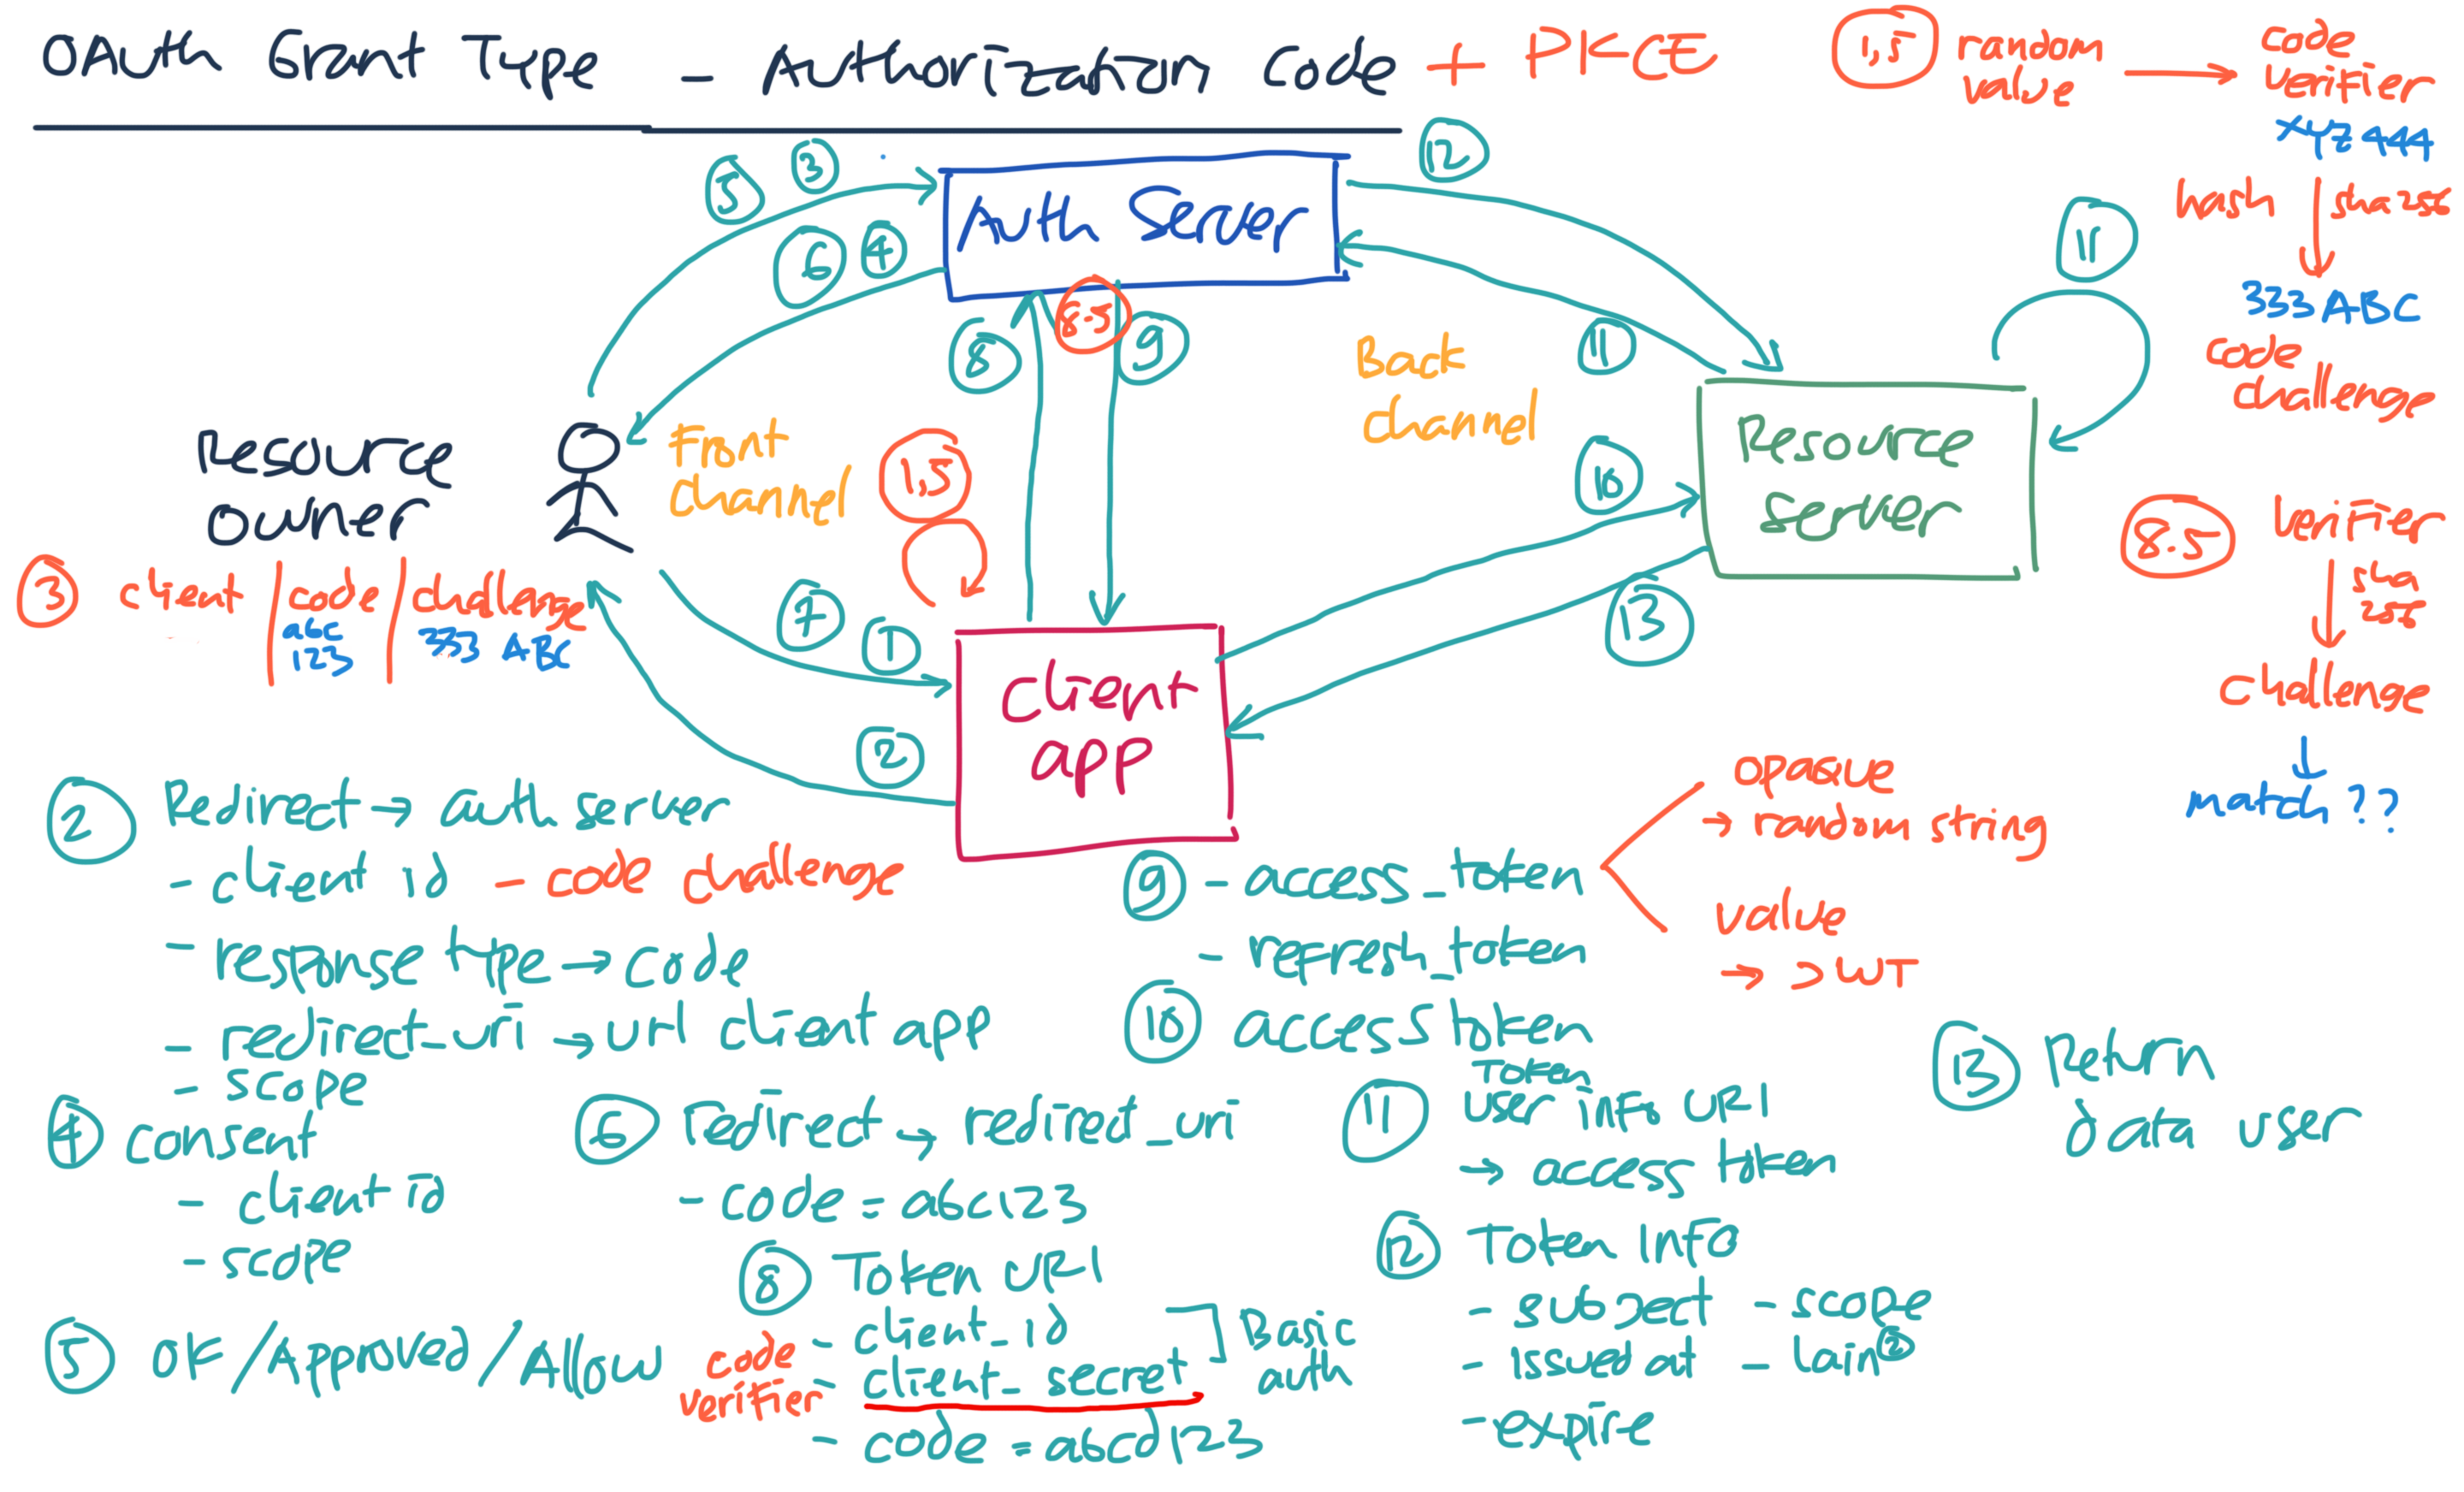 OAuth Grant Type - Authorization Code + PKCE
1,5 random value → code verifier
xyz444
hash sha256
333ABC
code challenge
5 3
6 4
Auth Server
12
11
11
8 8.5 9
Back channel
Front channel
1,5
Resource owner
Resource server
10
13
7 1
2
client app
8.5 verifier
sha 256
challenge
match ??
3 client / code / challenge
abc 123
333 ABC
2 Redirect → auth server
- client id - code challenge
- response type → code
- redirect_uri → url client app
- scope
4 consent
- client id
- scope
5 OK / Approved / Allow
6 redirect → redirect_uri
- code = abc123
8 Token URL
- client_id
- client_secret
Basic auth
code verifier
- code = abcd123
9 - access_token
- refresh_token
opaque
→ random string
value
→ JWT
10 access token
11 Token
user info URL
→ access token
12 Token Info
- subject - scope
- issued at - lain2
- expire
13 Return
data user